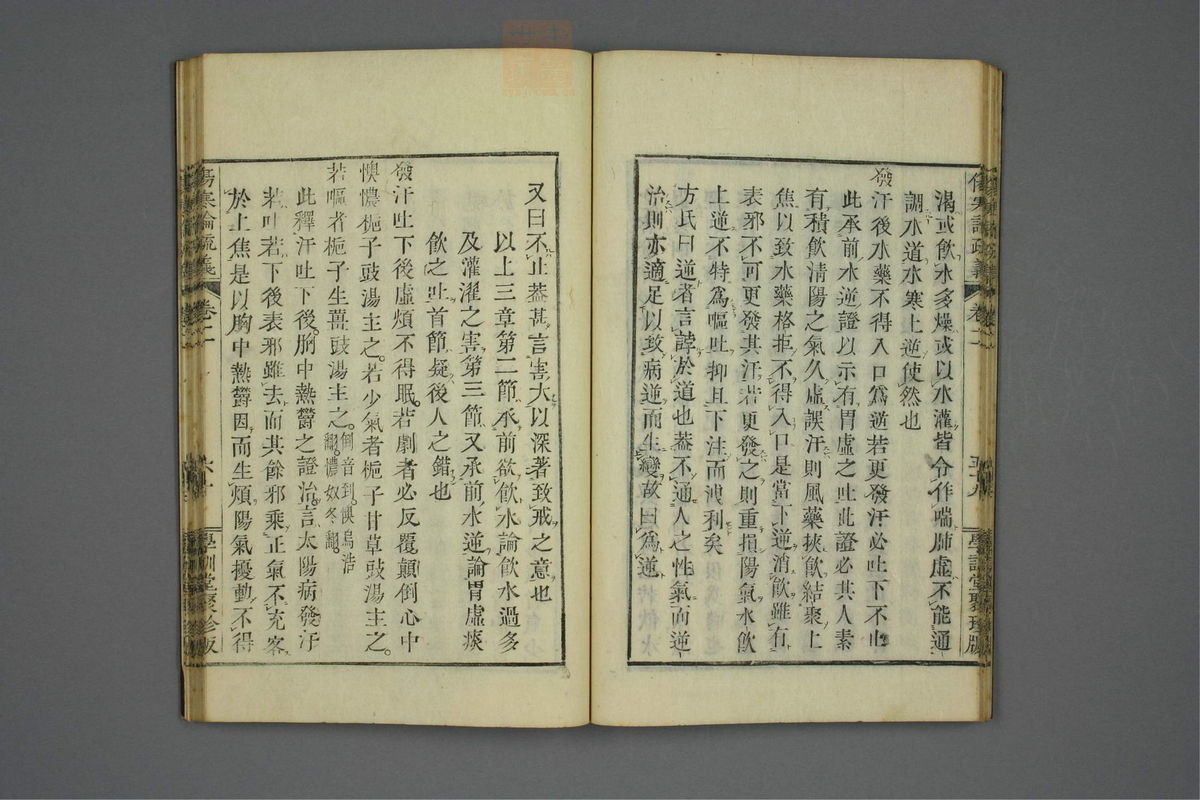 渴或飲水多燥或以水灌皆令作喘肺虛不能通
調水道水寒上逆使然也
發汗後水藥不得入口爲逆若更發汗必吐下不止
此承前水逆證以示有胃虛之吐此證必其人素
有積飲淸陽之氣久虛誤汗則風藥挾飲結聚上
焦以致水藥格拒不得入口是當下逆消飲雖有
表邪不可更發其汗若更發之則重損陽氣水飲
上逆不特爲嘔吐抑且下注而洩利矣
方氏曰逆者言誖於道也葢不通人之性氣而逆
治則亦適足以致病逆而生變故曰爲逆
傷寒論疏義 卷二 五十八 學訓堂聚珍版
又曰不止葢甚言害大以深著致戒之意也
以上三章第二節承前欲飲水論飲水過多
及灌濯之害第三節又承前水逆論胃虛痰
飲之吐首節疑後人之錯也
發汗吐下後虛煩不得眠若劇者必反覆顚倒心中
懊憹梔子豉湯主之若少氣者梔子甘草豉湯主之
若嘔者梔子生薑豉湯主之倒音到懊烏浩翻憹奴冬翻
此釋汗吐下後胸中熱鬱之證治言太陽病發汗
若吐若下後表邪雖去而其餘邪乘正氣不充客
於上焦是以胸中熱鬱因而生煩陽氣擾動不得
傷寒論疏義 卷二 學訓堂聚珍版